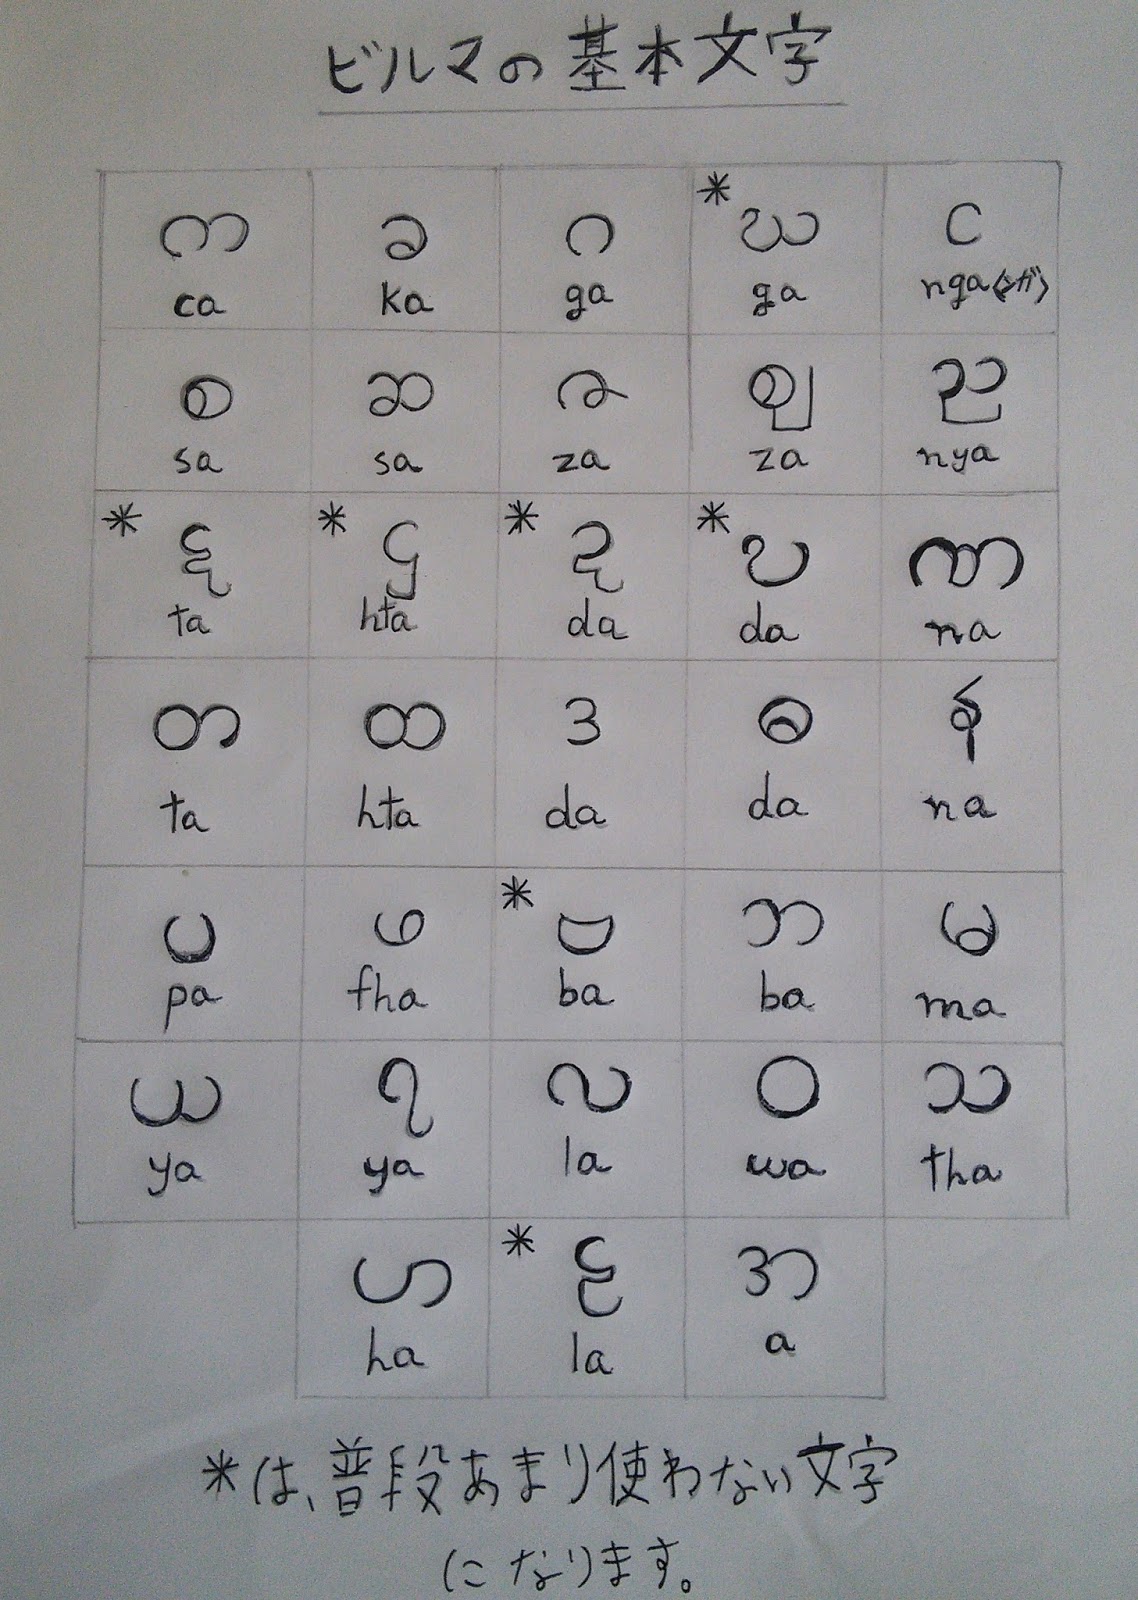 ビルマの基本文字
က ခ ဂ * ဃ င
ca ka ga ga nga〈ンガ〉
စ ဆ ဇ ဈ ည
sa sa za za nya
* ဋ * ဌ * ဍ * ဎ ဏ
ta hta da da na
တ ထ ဒ ဓ န
ta hta da da na
ပ ဖ * ဗ ဘ မ
pa fha ba ba ma
ယ ရ လ ဝ သ
ya ya la wa tha
ဟ * ဠ အ
ha la a
*は、普段あまり使わない文字
になります。